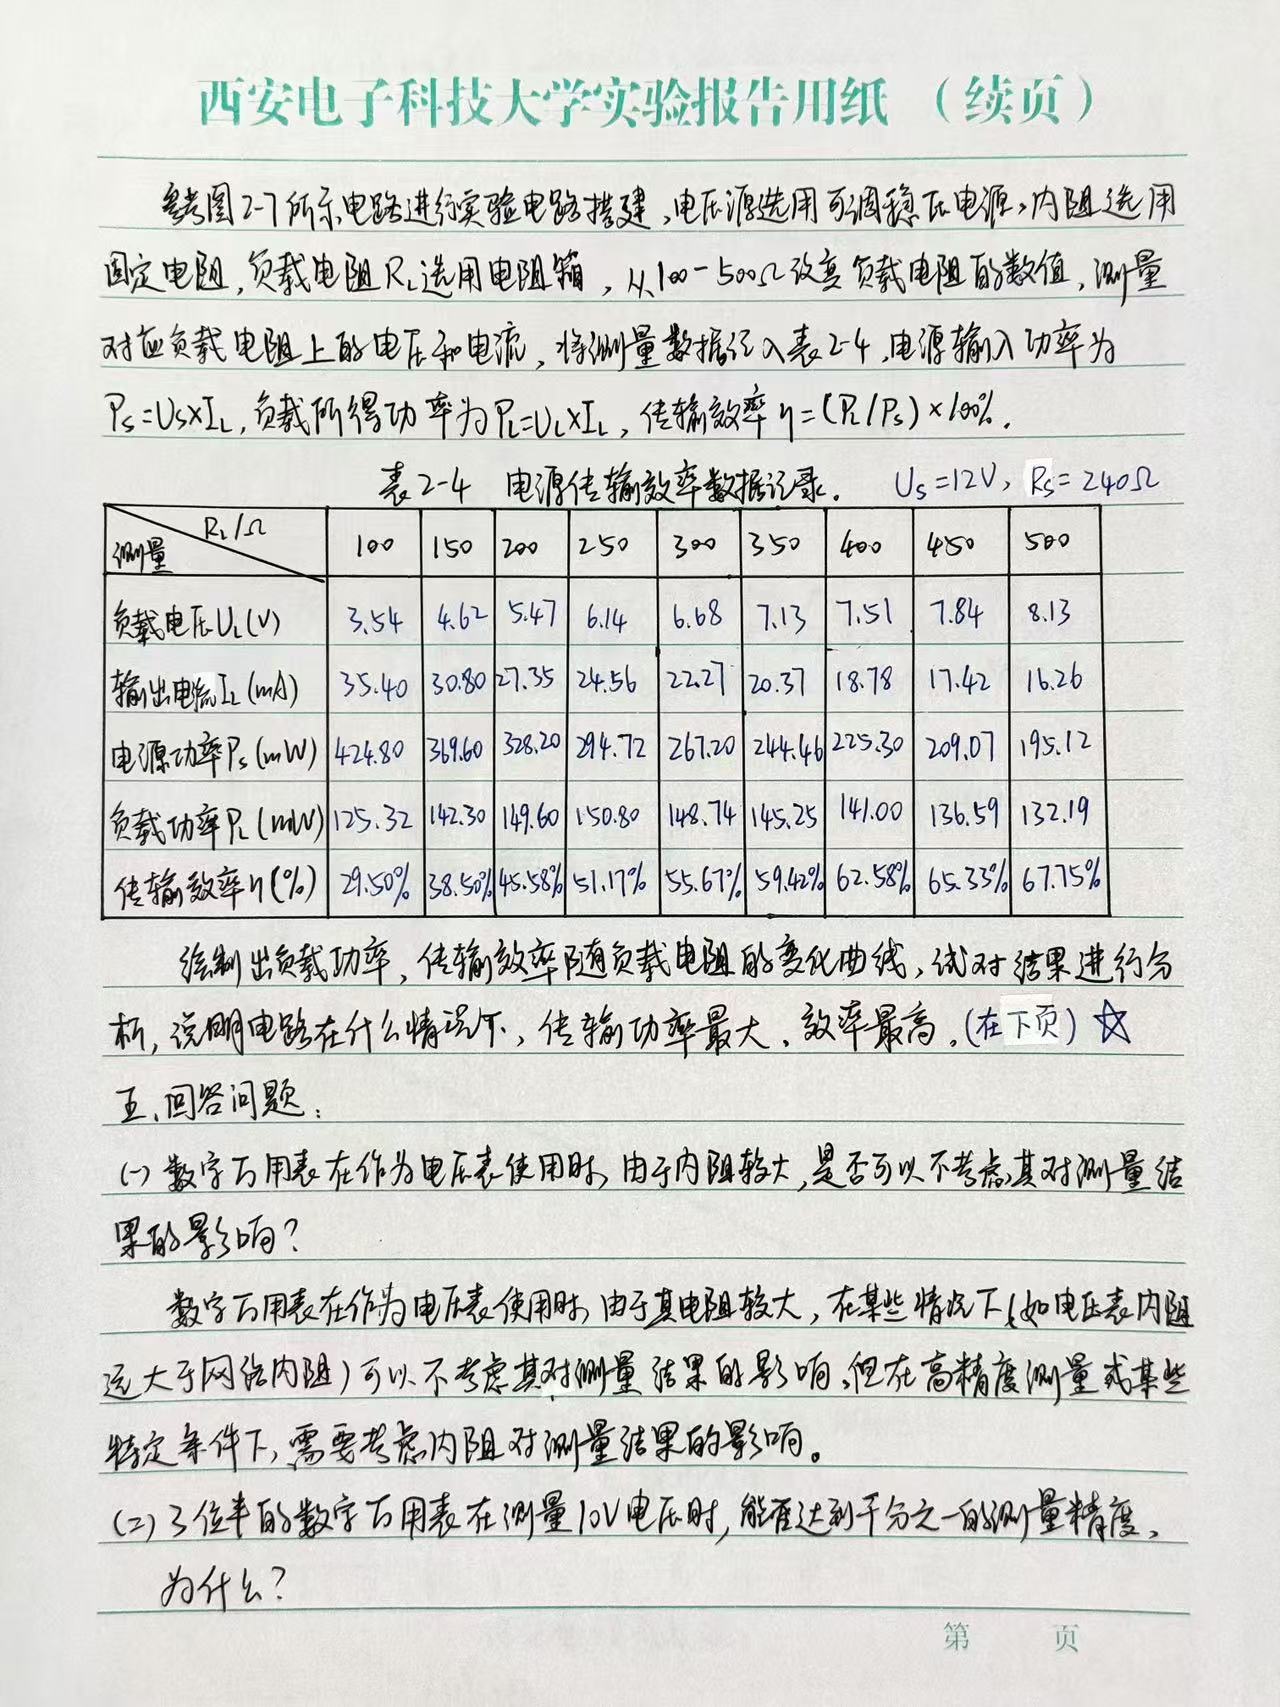 西安电子科技大学实验报告用纸（续页）
参考图2-7所示电路进行实验电路搭建，电压源选用可调稳压电源，内阻选用
固定电阻，负载电阻RL选用电阻箱，从100-500Ω改变负载电阻的数值，测量
对应负载电阻上的电压和电流，将测量数据记入表2-4，电源输入功率为
Ps=Us×IL，负载所得功率为PL=UL×IL，传输效率η=(PL/Ps)×100%.
表2-4 电源传输效率数据记录. Us=12V, Rs=240Ω
测量 RL/Ω 100 150 200 250 300 350 400 450 500
负载电压UL(V) 3.54 4.62 5.47 6.14 6.68 7.13 7.51 7.84 8.13
输出电流IL(mA) 35.40 30.80 27.35 24.56 22.27 20.37 18.78 17.42 16.26
电源功率Ps(mW) 424.80 369.60 328.20 294.72 267.20 244.46 225.30 209.07 195.12
负载功率PL(mW) 125.32 142.30 149.60 150.80 148.74 145.25 141.00 136.59 132.19
传输效率η(%) 29.50% 38.50% 45.58% 51.17% 55.67% 59.42% 62.58% 65.33% 67.75%
绘制出负载功率，传输效率随负载电阻的变化曲线，试对结果进行分
析，说明电路在什么情况下，传输功率最大、效率最高。(在下页)☆
五、回答问题：
(一) 数字万用表在作为电压表使用时，由于内阻较大，是否可以不考虑其对测量结
果的影响？
数字万用表在作为电压表使用时，由于其电阻较大，在某些情况下(如电压表内阻
远大于网络内阻)可以不考虑其对测量结果的影响，但在高精度测量或某些
特定条件下，需要考虑内阻对测量结果的影响。
(二) 3位半的数字万用表在测量10V电压时，能否达到千分之一的测量精度，
为什么？
第 页